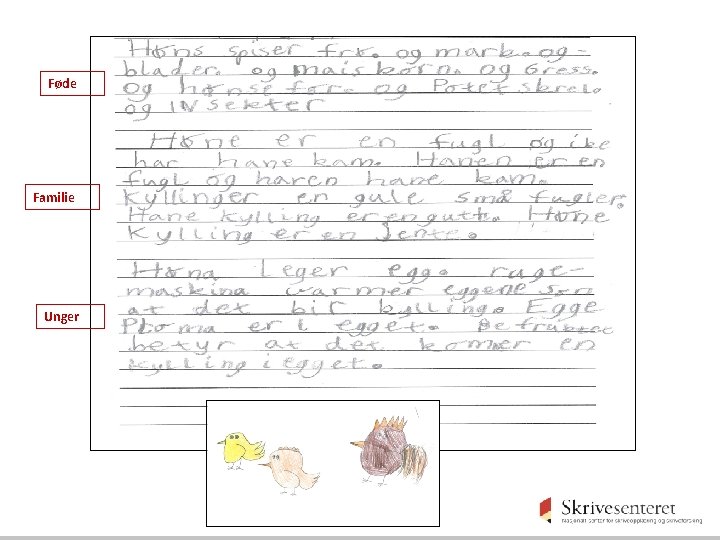 Høns spiser frø. og mark. og-
blader. og maiskorn. og Gress.
og hønsefor. og Potetskrel.
og INSekter
Føde
Høne er en fugl og ike
har hane kam. Hanen er en
fugl og haren hane kam.
Kyllinger en gule små fugler.
Hane kylling er en gutt. Høne
Kylling er en Jente.
Familie
Høna Leger egg. ruge-
maskina varmer eggene sån
at det blir kylling. Egge
Ploma er i egget. Befruktet
betyr at det komer en
kylling i egget.
Unger
Skrivesenteret
Nasjonalt senter for skriveopplæring og skriveforsking